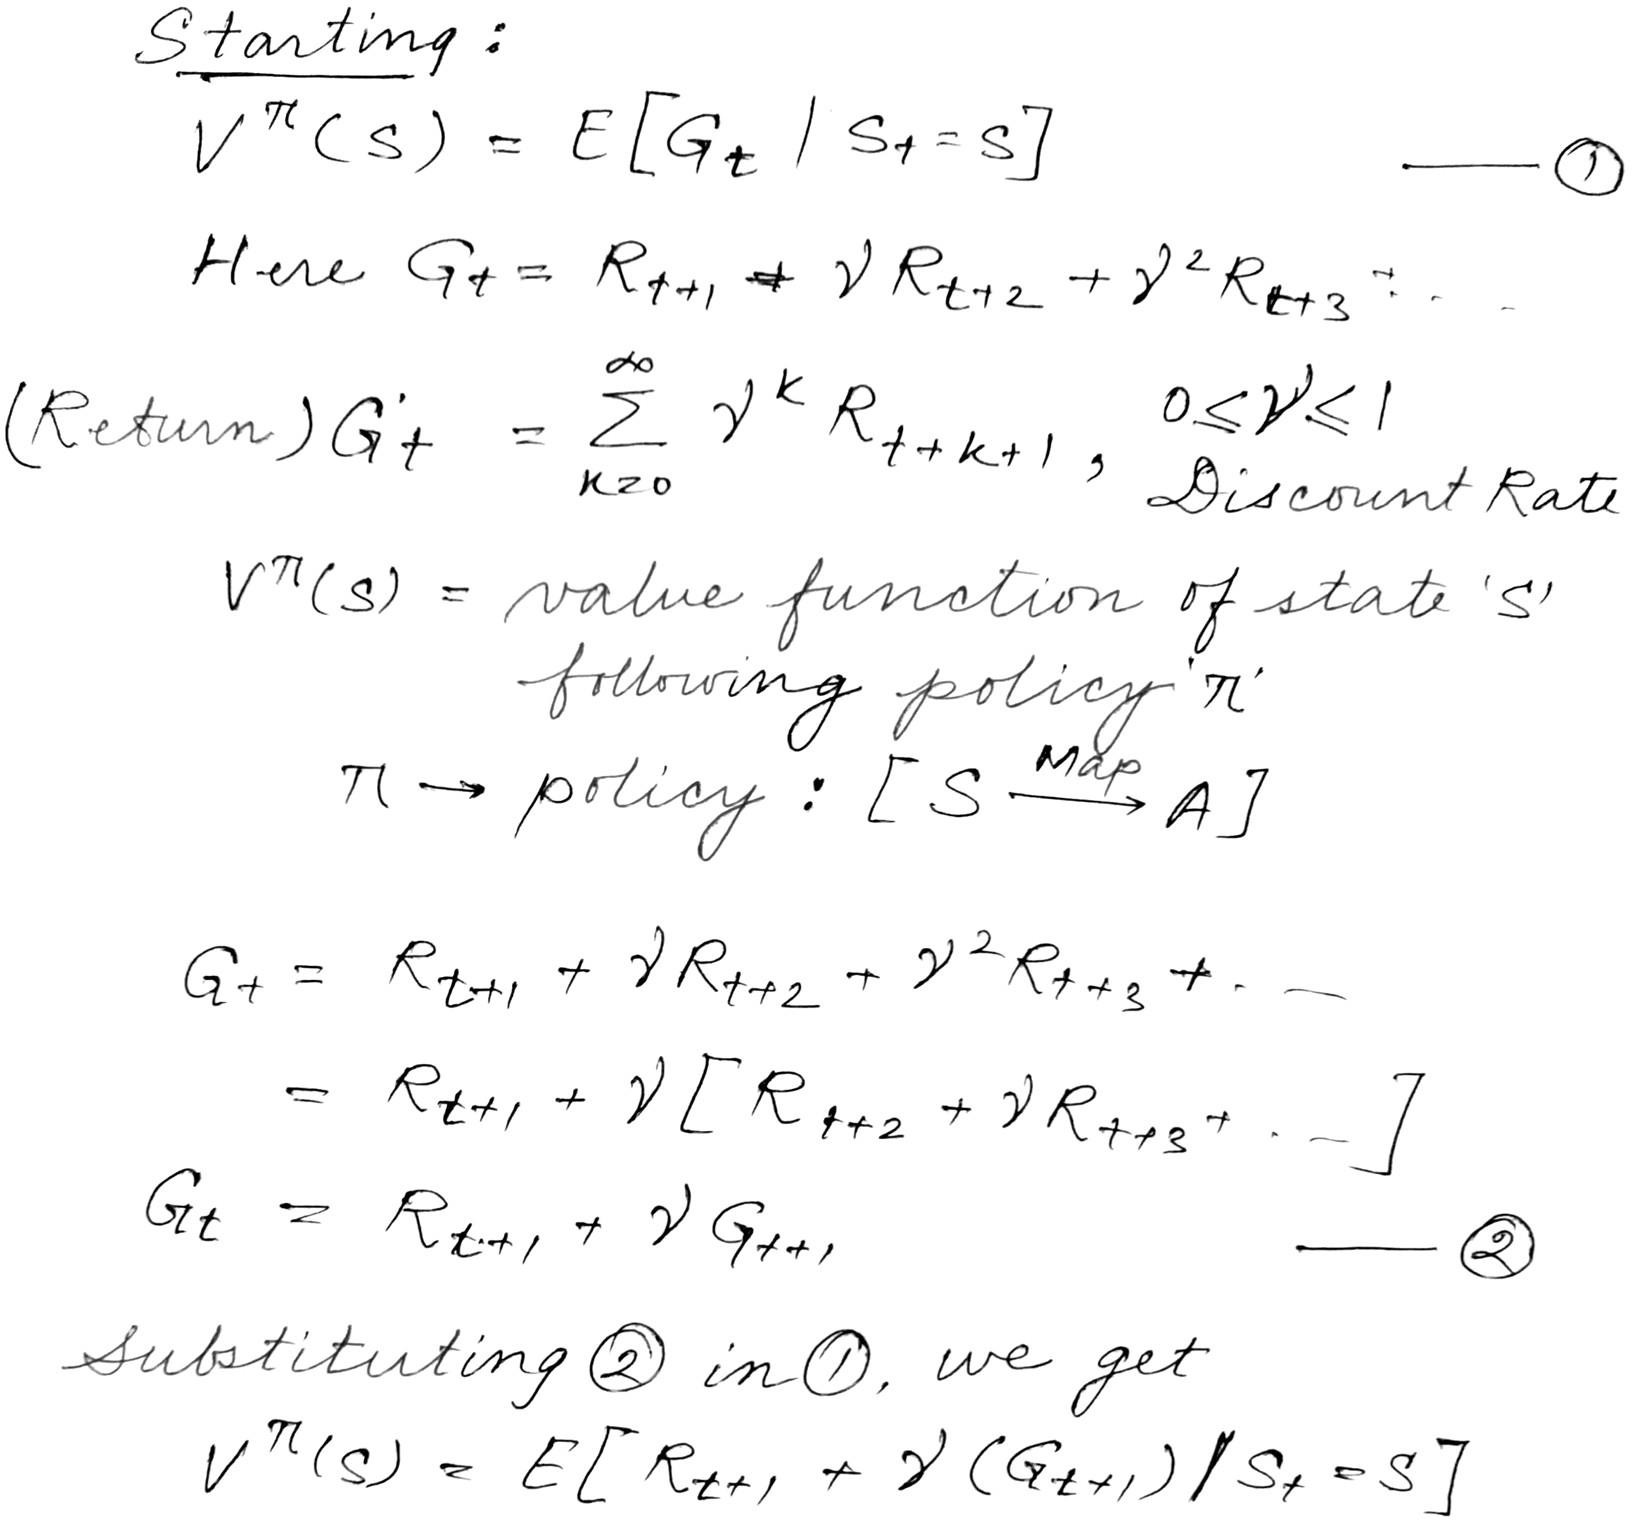 Starting :
V^π(s) = E[G_t | S_t = s] —— ①
Here G_t = R_{t+1} + γ R_{t+2} + γ² R_{t+3} + . . .
(Return) G_t = ∑_{k=0}^{∞} γ^k R_{t+k+1} , 0 ≤ γ ≤ 1
Discount Rate
V^π(s) = value function of state 's'
following policy 'π'
π → policy : [ S —Map→ A ]
G_t = R_{t+1} + γ R_{t+2} + γ² R_{t+3} + . . —
= R_{t+1} + γ [ R_{t+2} + γ R_{t+3} + . . — ]
G_t = R_{t+1} + γ G_{t+1} —— ②
Substituting ② in ①, we get
V^π(s) = E[ R_{t+1} + γ (G_{t+1}) | S_t = s ]